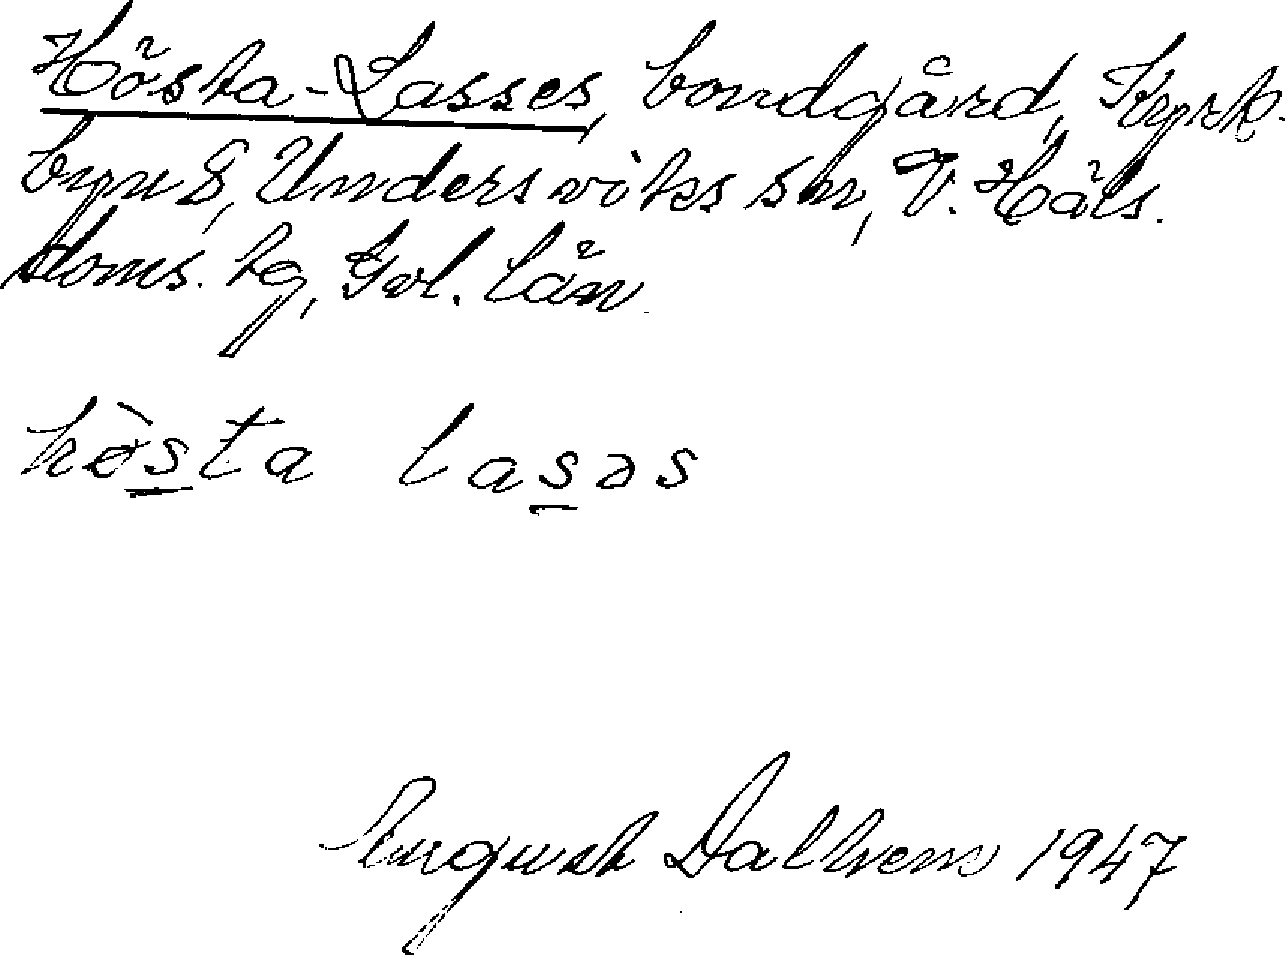 Hösta-Lasses, bondgård, Kyrk-
byn 8, Undersviks sn, V. Häls.
doms. tg, Gvl. län.
hösta lasəs
August Dalhem 1947